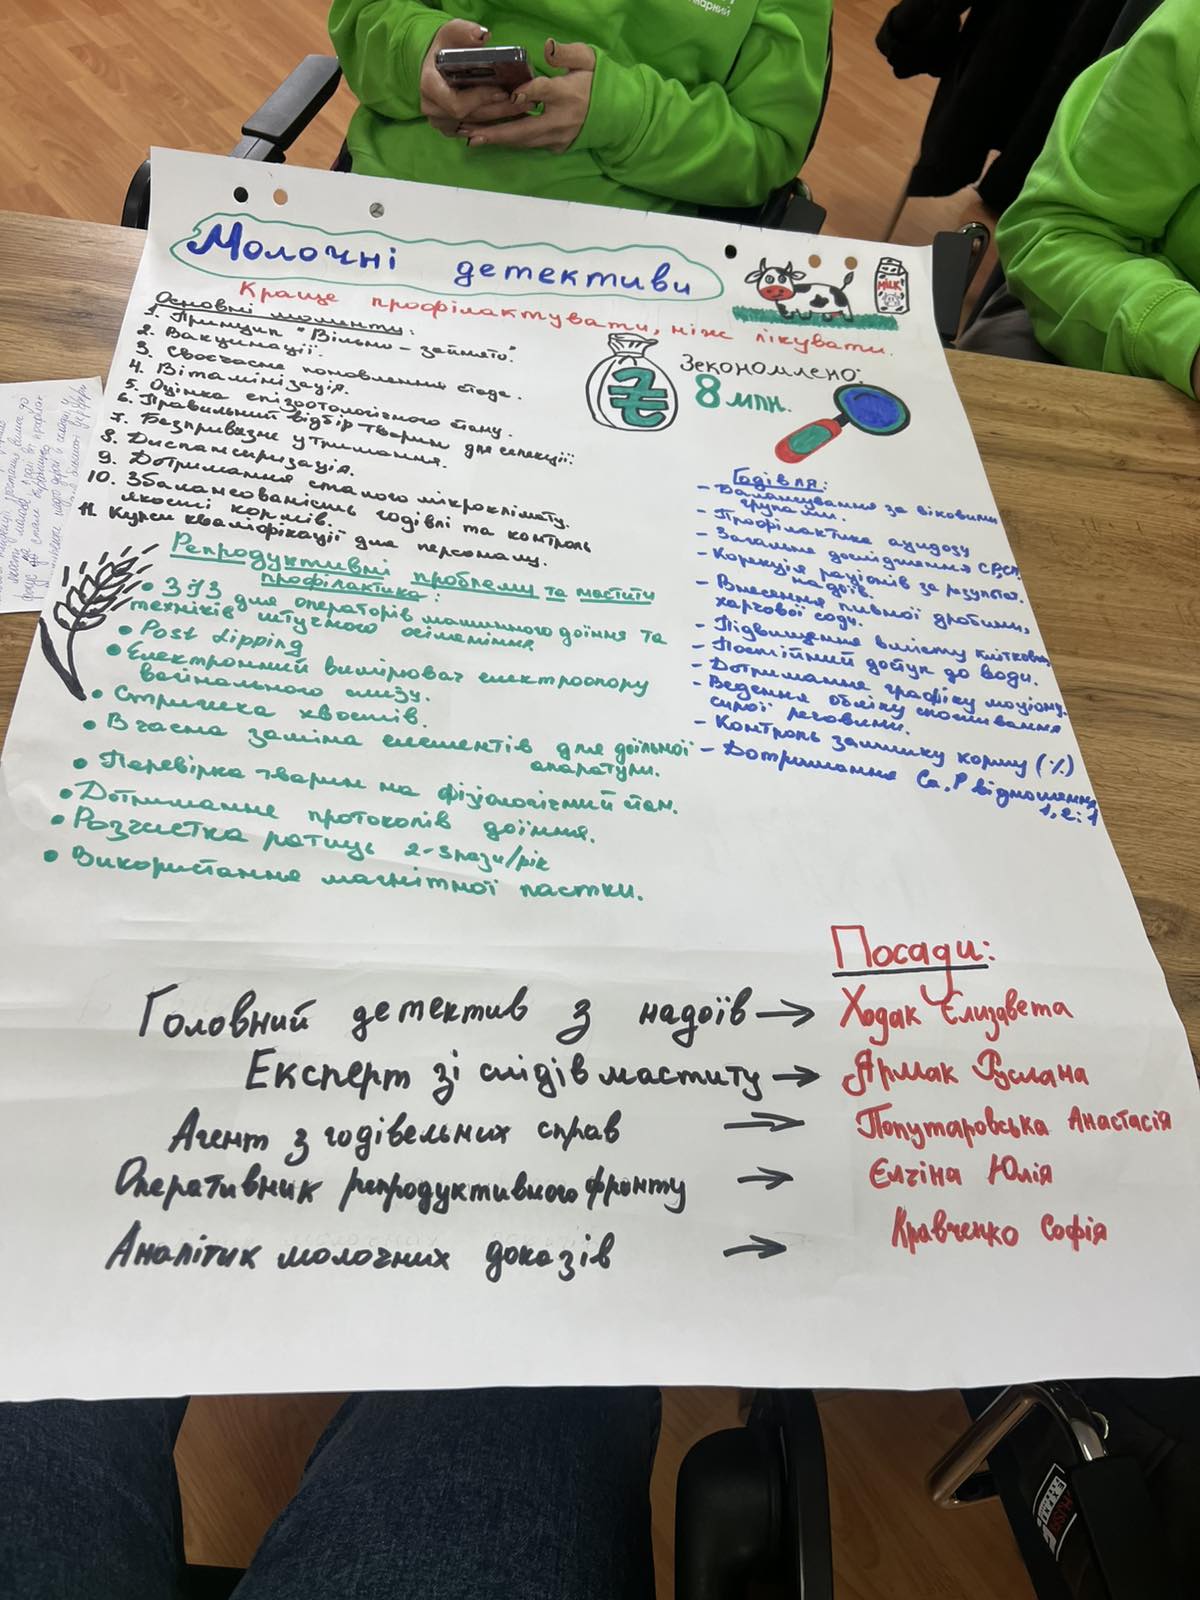 Молочні детективи
Краще профілактувати, ніж лікувати.
MILK
Зекономлено:
8 млн.
₴
Основні моменти:
1. Принцип "Вільно - зайнято".
2. Вакцинації.
3. Своєчасне поновлення стада.
4. Вітамінізація.
5. Оцінка епізоотологічного стану.
6. Правильний відбір тварин для селекції.
7. Безпривязне утримання.
8. Диспансеризація.
9. Дотримання сталого мікроклімату.
10. Збалансованість годівлі та контроль
якості кормів.
11. Курси кваліфікації для персоналу.
Репродуктивні проблеми та мастити
профілактика:
• ЗІЗ для операторів машинного доїння та
техніків штучного осіменіння.
• Post dipping
• Електронний вимірювач електроопору
вагінального слизу.
• Стрижка хвостів.
• Вчасна заміна елементів для доїльної
апаратури.
• Перевірка тварин на фізіологічний стан.
• Дотримання протоколів доїння.
• Розчистка ратиць 2-3 рази/рік
• Використання магнітної пастки.
Годівля:
- Балансування за віковими
групами.
- Профілактика ацидозу
- Загальне дослідження
- Корекція раціонів за результ.
надоїв.
- Внесення пивної дробини,
харчової соди.
- Підвищення вмісту клітков.
- Постійний доступ до води.
- Дотримання графіку моціону.
- Ведення обліку споживання
сирої речовини.
- Контроль залишку корму (%)
- Дотримання Ca, P відношення
1,2:1
Посади:
Головний детектив з надоїв → Ходак Єлизавета
Експерт зі слідів маститу → Ярмак Руслана
Агент з годівельних справ → Попутаровська Анастасія
Оперативник репродуктивного фронту → Єлчіна Юлія
Аналітик молочних доказів → Кравченко Софія